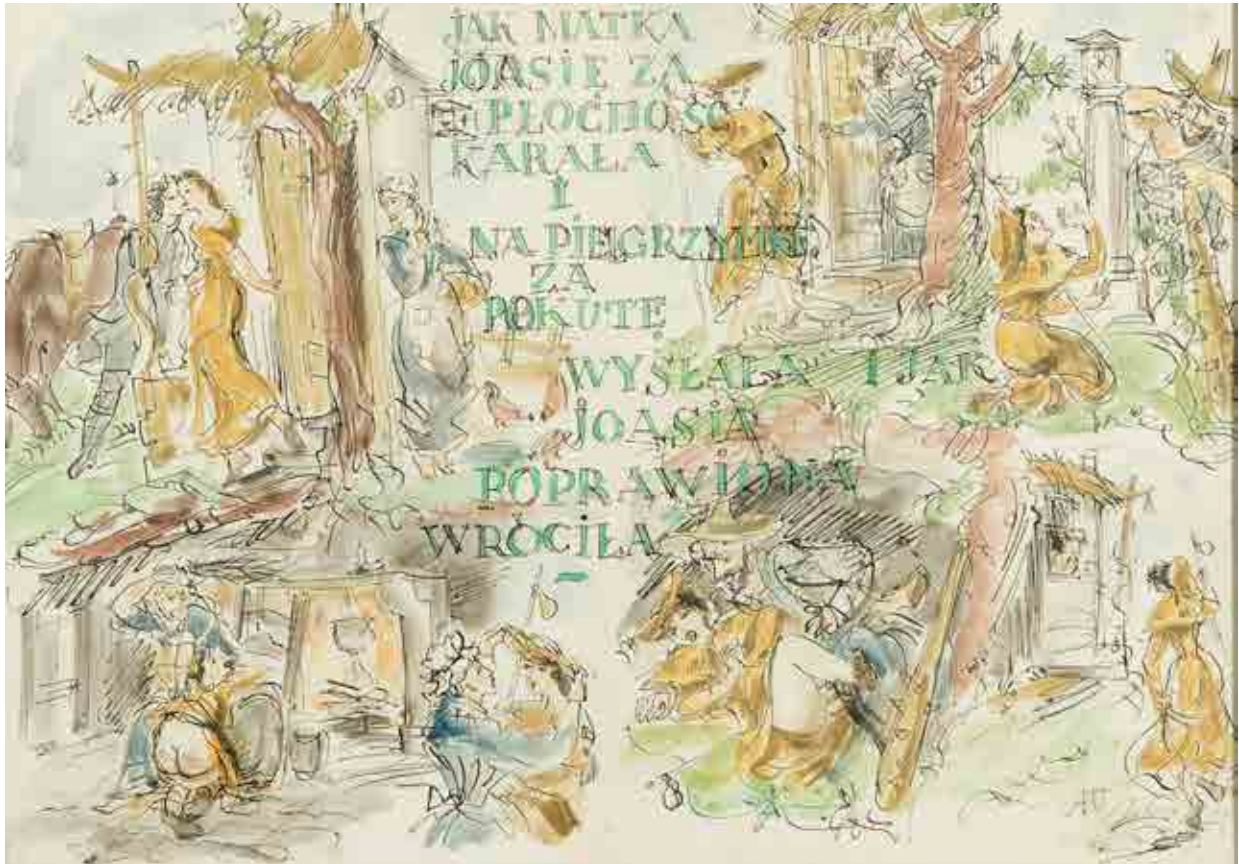 JAK MATKA
JOASIĘ ZA
PŁOCHOŚĆ
KARAŁA
I
NA PIELGRZYMKĘ
ZA
POKUTĘ
WYSŁAŁA I JAK
JOASIA
POPRAWIONA
WRÓCIŁA